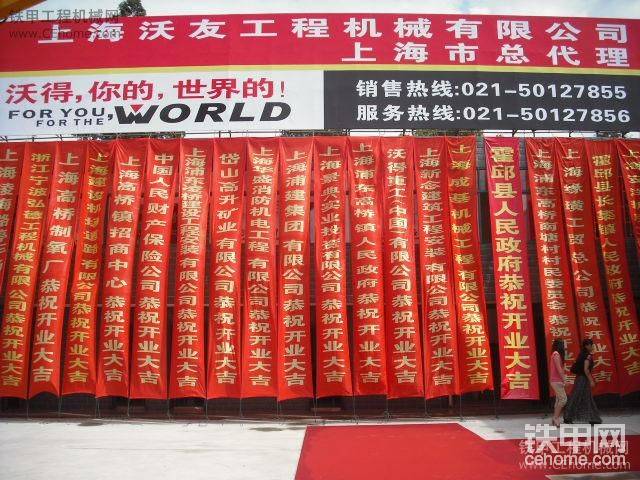 铁甲工程机械网
CEhome.com
上海沃友工程机械有限公司
上海市总代理
沃得,你的,世界的!
FOR YOU,
FOR THE WORLD
销售热线:021-50127855
服务热线:021-50127856
浙江宁波弘德工程机械有限公司恭祝开业大吉
上海高桥制氧厂恭祝开业大吉
上海高桥镇招商中心恭祝开业大吉
中国人民财产保险公司恭祝开业大吉
岱山高升矿业有限公司恭祝开业大吉
上海浦建集团有限公司恭祝开业大吉
上海景典实业投资有限公司恭祝开业大吉
上海浦东高桥镇人民政府恭祝开业大吉
沃得重工(中国)有限公司恭祝开业大吉
上海新念建筑工程安装有限公司恭祝开业大吉
上海成基机械工程有限公司恭祝开业大吉
霍邱县人民政府恭祝开业大吉
上海浦东高桥南塘村村民委员会恭祝开业大吉
霍邱县长集镇人民政府恭祝开业大吉
铁甲网
cehome.com